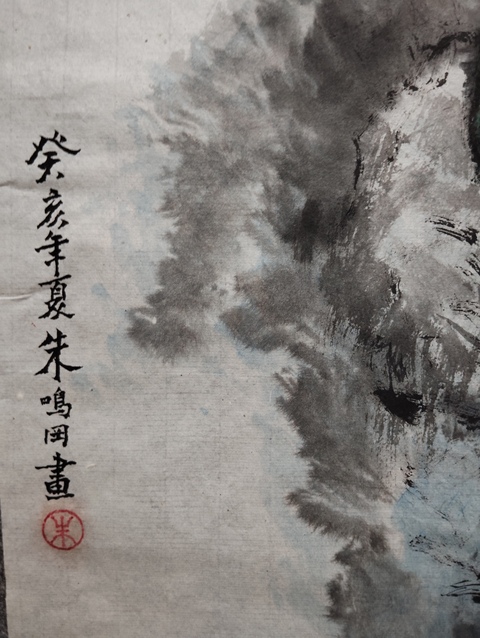 癸亥年夏朱鳴岡畫
朱